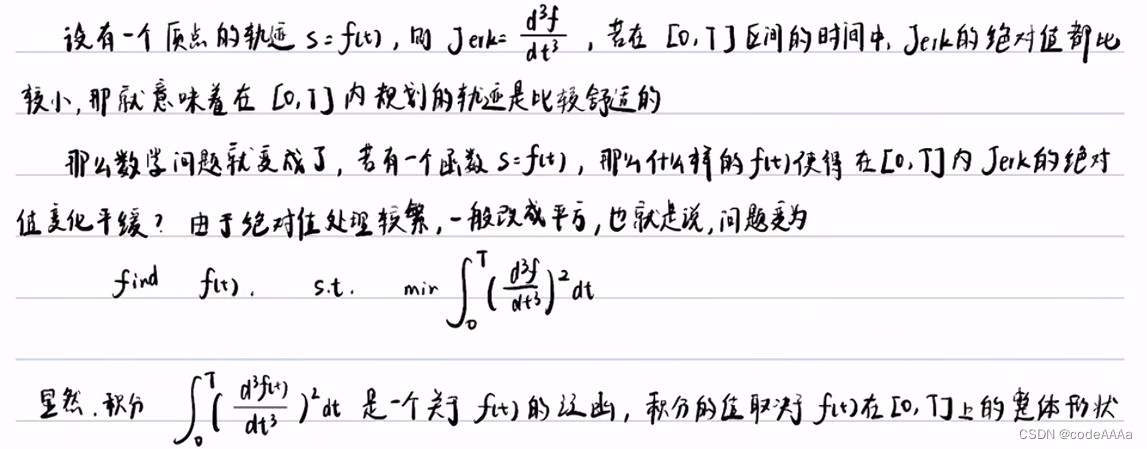 设有一个质点的轨迹 s=f(t), 则 Jerk= d³f/dt³ , 若在 [0,T] 区间的时间中, Jerk的绝对值都比
较小, 那就意味着在 [0,T] 内规划的轨迹是比较舒适的
那么数学问题就变成了, 若有一个函数 s=f(t), 那么什么样的 f(t)使得在[0,T]内 Jerk的绝对
值变化平缓? 由于绝对值处理较繁, 一般改成平方, 也就是说, 问题变为
find f(t). s.t. min ∫₀ᵀ (d³f/dt³)² dt
显然, 积分 ∫₀ᵀ (d³f(t)/dt³)² dt 是一个关于 f(t) 的泛函, 积分的值取决于 f(t)在[0,T]上的整体形状
CSDN @codeAAAa